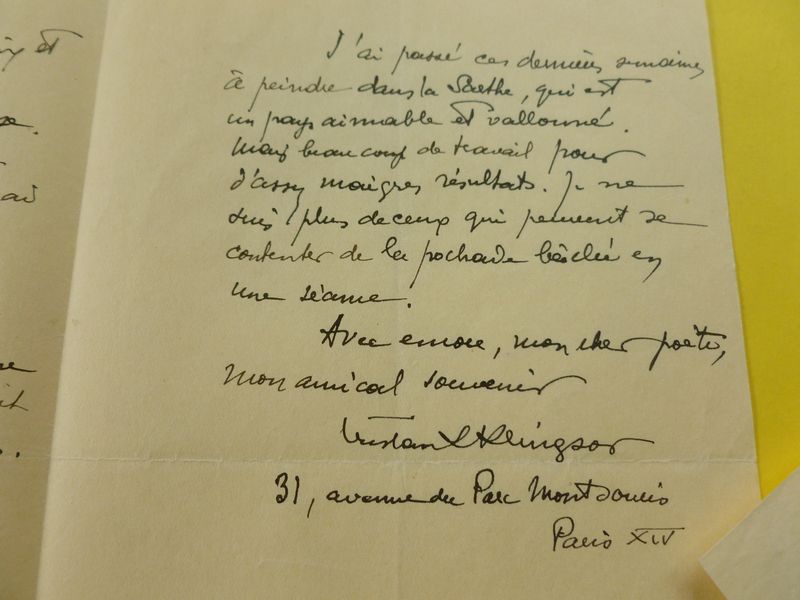 et
J'ai passé ces dernières semaines
à peindre dans la Sarthe, qui est
un pays aimable et vallonné.
Mais beaucoup de travail pour
d'assez maigres résultats. Je ne
suis plus de ceux qui peuvent se
contenter de la pochade bâclée en
une séance.
Avec encore, mon cher poète,
mon amical souvenir
Tristan Klingsor
31, avenue du Parc Montsouris
Paris XIV